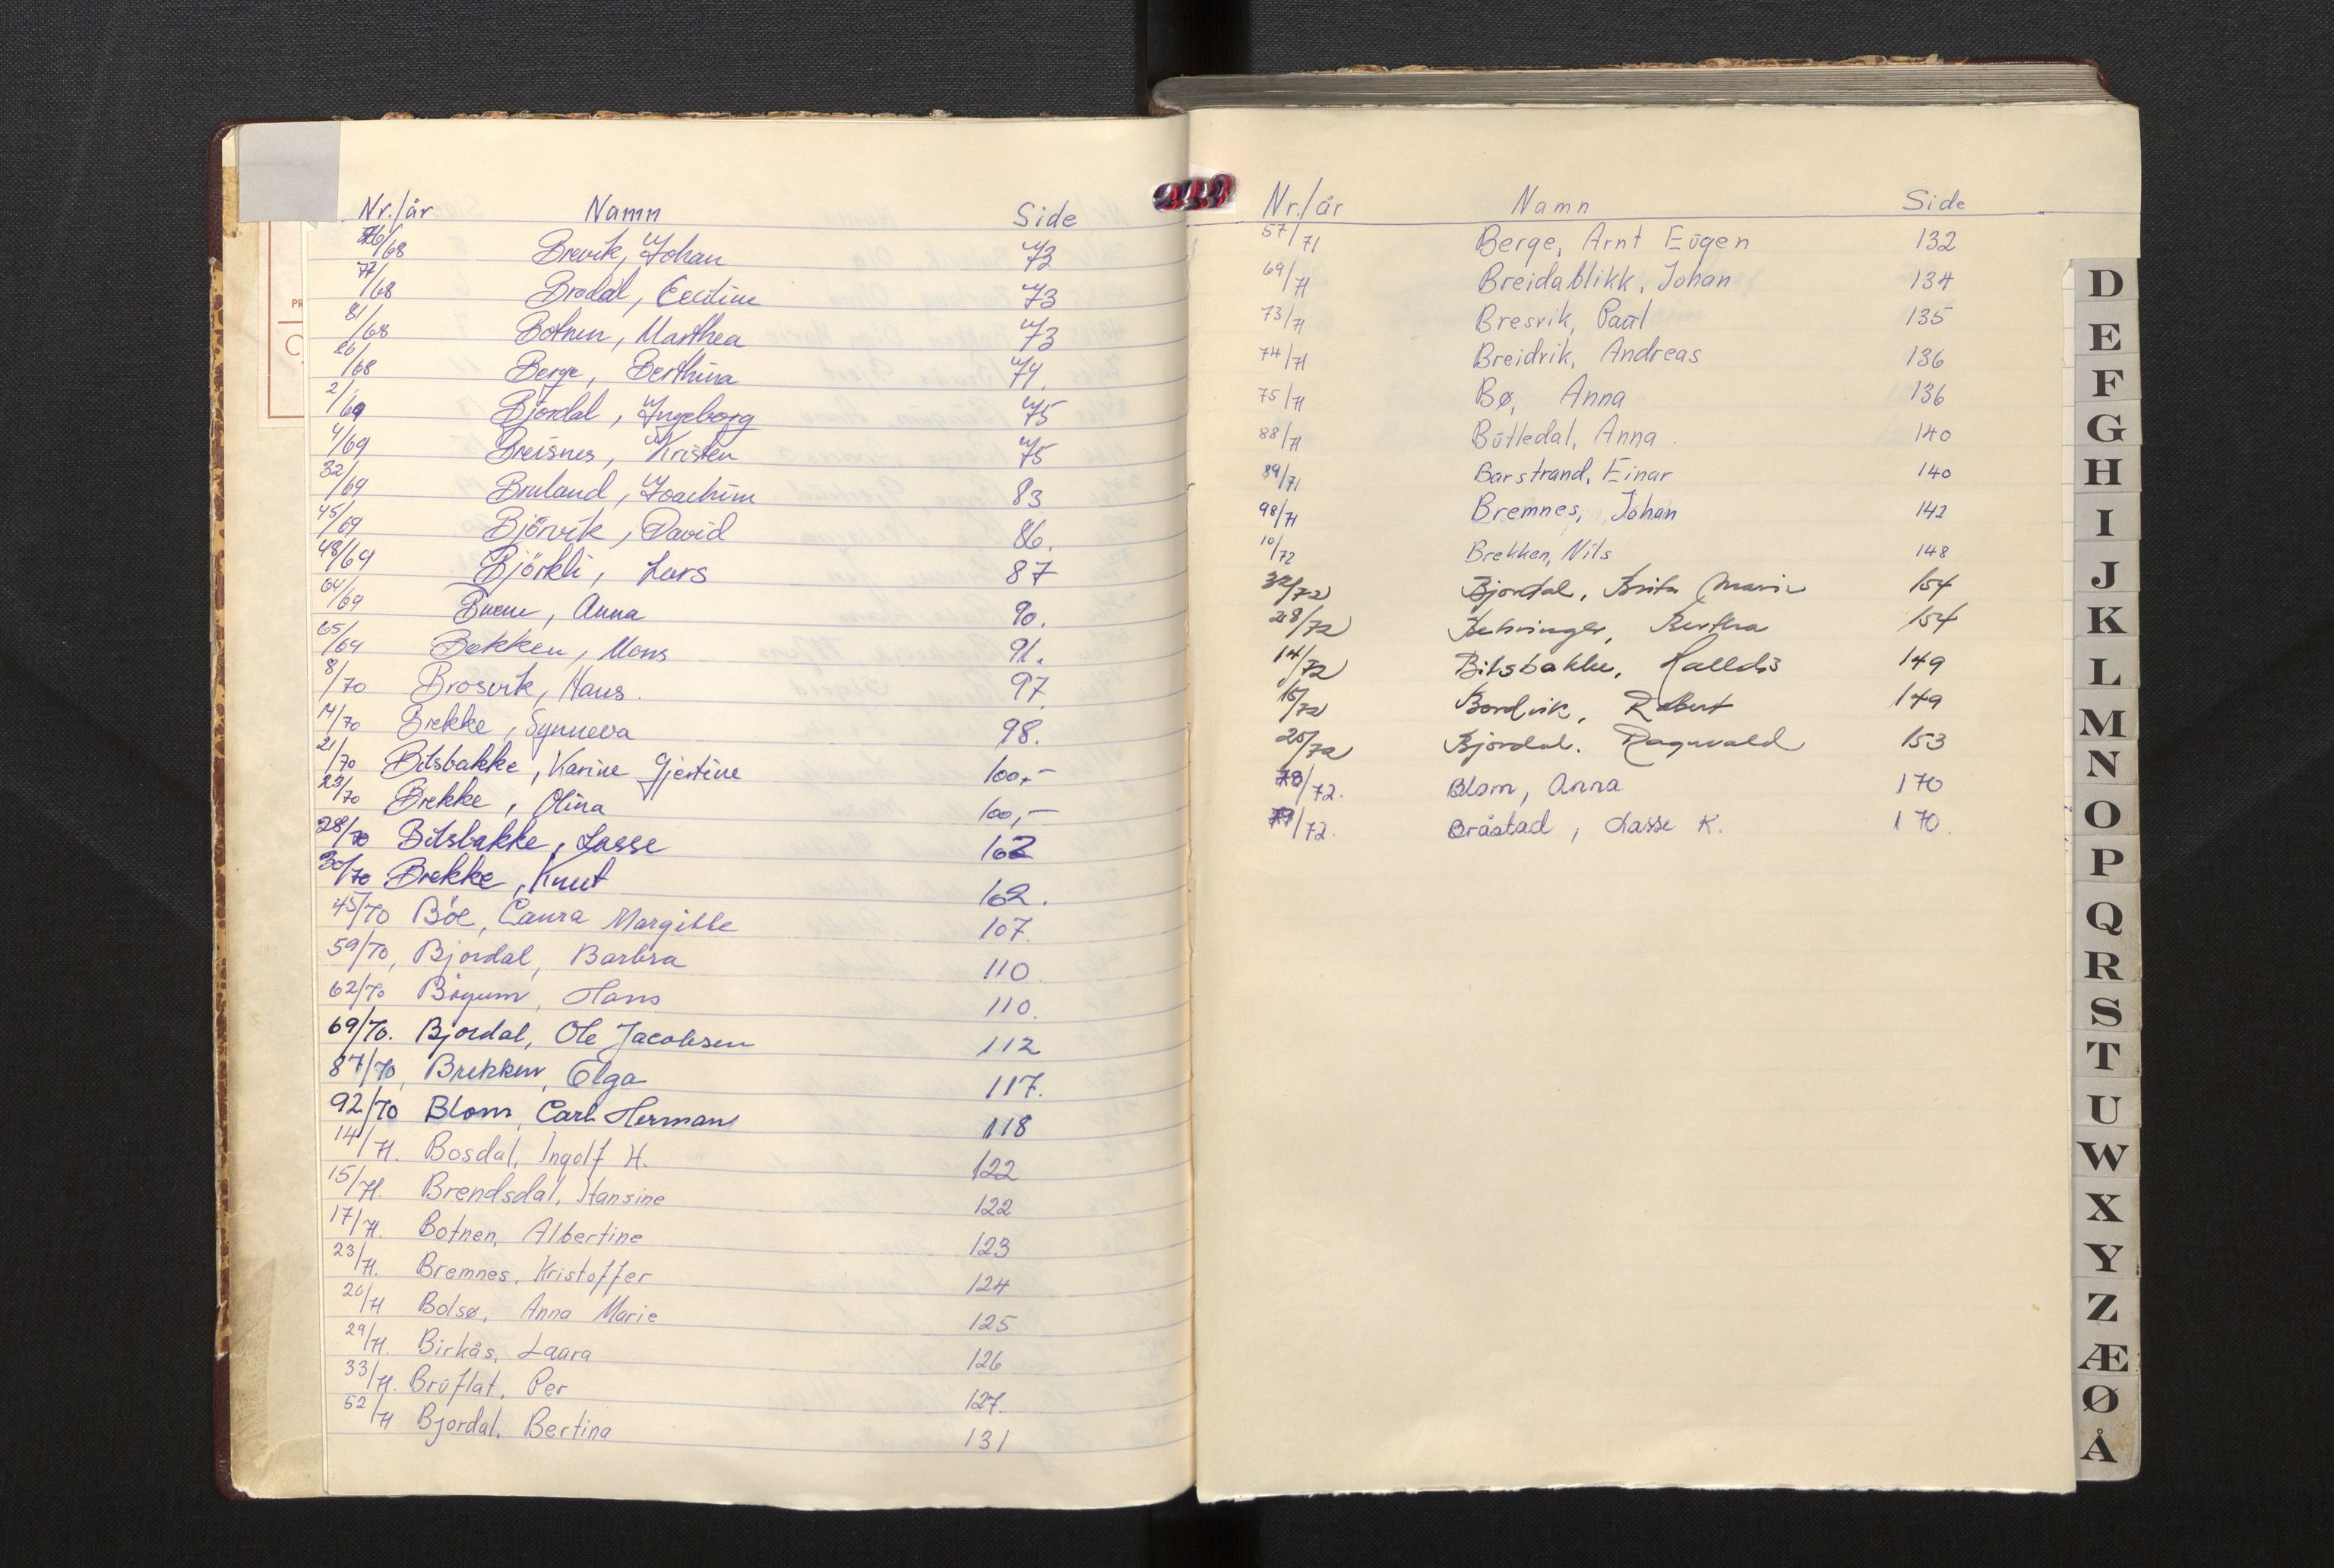 Nr./år Namn Side
76/68 Brevik, Johan 73
77/68 Brodal, 73
81/68 Botnen, Marthea 73
86/68 Berge, Berthina 74.
2/69 Bjordal, Ingeborg 75
4/69 Breisnes, Kristen 75
32/69 Bruland, Joachim 83
45/69 Björvik, David 86.
48/69 Björkli, Lars 87
64/69 Anna 90.
65/69 Bakken, Mons 91.
8/70 Brosvik, Hans. 97.
14/70 Brekke, Synneva 98.
21/70 Bitsbakke, Karine Gjertine 100,-
23/70 Brekke, Olina 100,-
28/70 Bitsbakke, Lasse 102
30/70 Brekke, Knut 102.
45/70 Böe, Laura Margitte 107.
59/70, Bjordal, Barbra 110.
62/70 Böyum, Hans 110.
69/70. Bjordal, Ole Jacobsen 112
87/70, Brekken, Olga 117.
92/70 Blom, Carl Herman 118
14/71. Bosdal, Ingolf H. 122
15/71. Brendsdal, Hansine 122
17/71. Botnen, Albertine 123
23/71. Bremnes, Kristoffer 124
26/71 Bolsø, Anna Marie 125
29/71. Birkås, Laura 126
33/71. Bruflat, Per 127.
52/71 Bjordal, Bertina 131
Nr./år Namn Side
57/71 Berge, Arnt Eugen 132
69/71 Breidablikk, Johan 134
73/71 Bresvik, Paul 135
74/71 Breidvik, Andreas 136
75/71 Bø, Anna 136
88/71 Butledal, Anna 140
89/71 Barstrand, Einar 140
98/71 Bremnes, Johan 142
10/72 Brekken, Nils 148
32/72 Bjordal, Brita Marie 154
28/72 Behringer, Bertha 154
14/72 Bitsbakke, Halldis 149
15/72 Bordvik, Robert 149
25/72 Bjordal. Ragnvald 153
78/72. Blom, Anna 170
79/72. Bråstad, Lasse K. 170.
D
E
F
G
H
I
J
K
L
M
N
O
P
Q
R
S
T
U
W
X
Y
Z
Æ
Ø
Å